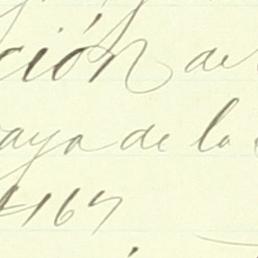 ción de
aya de la
167